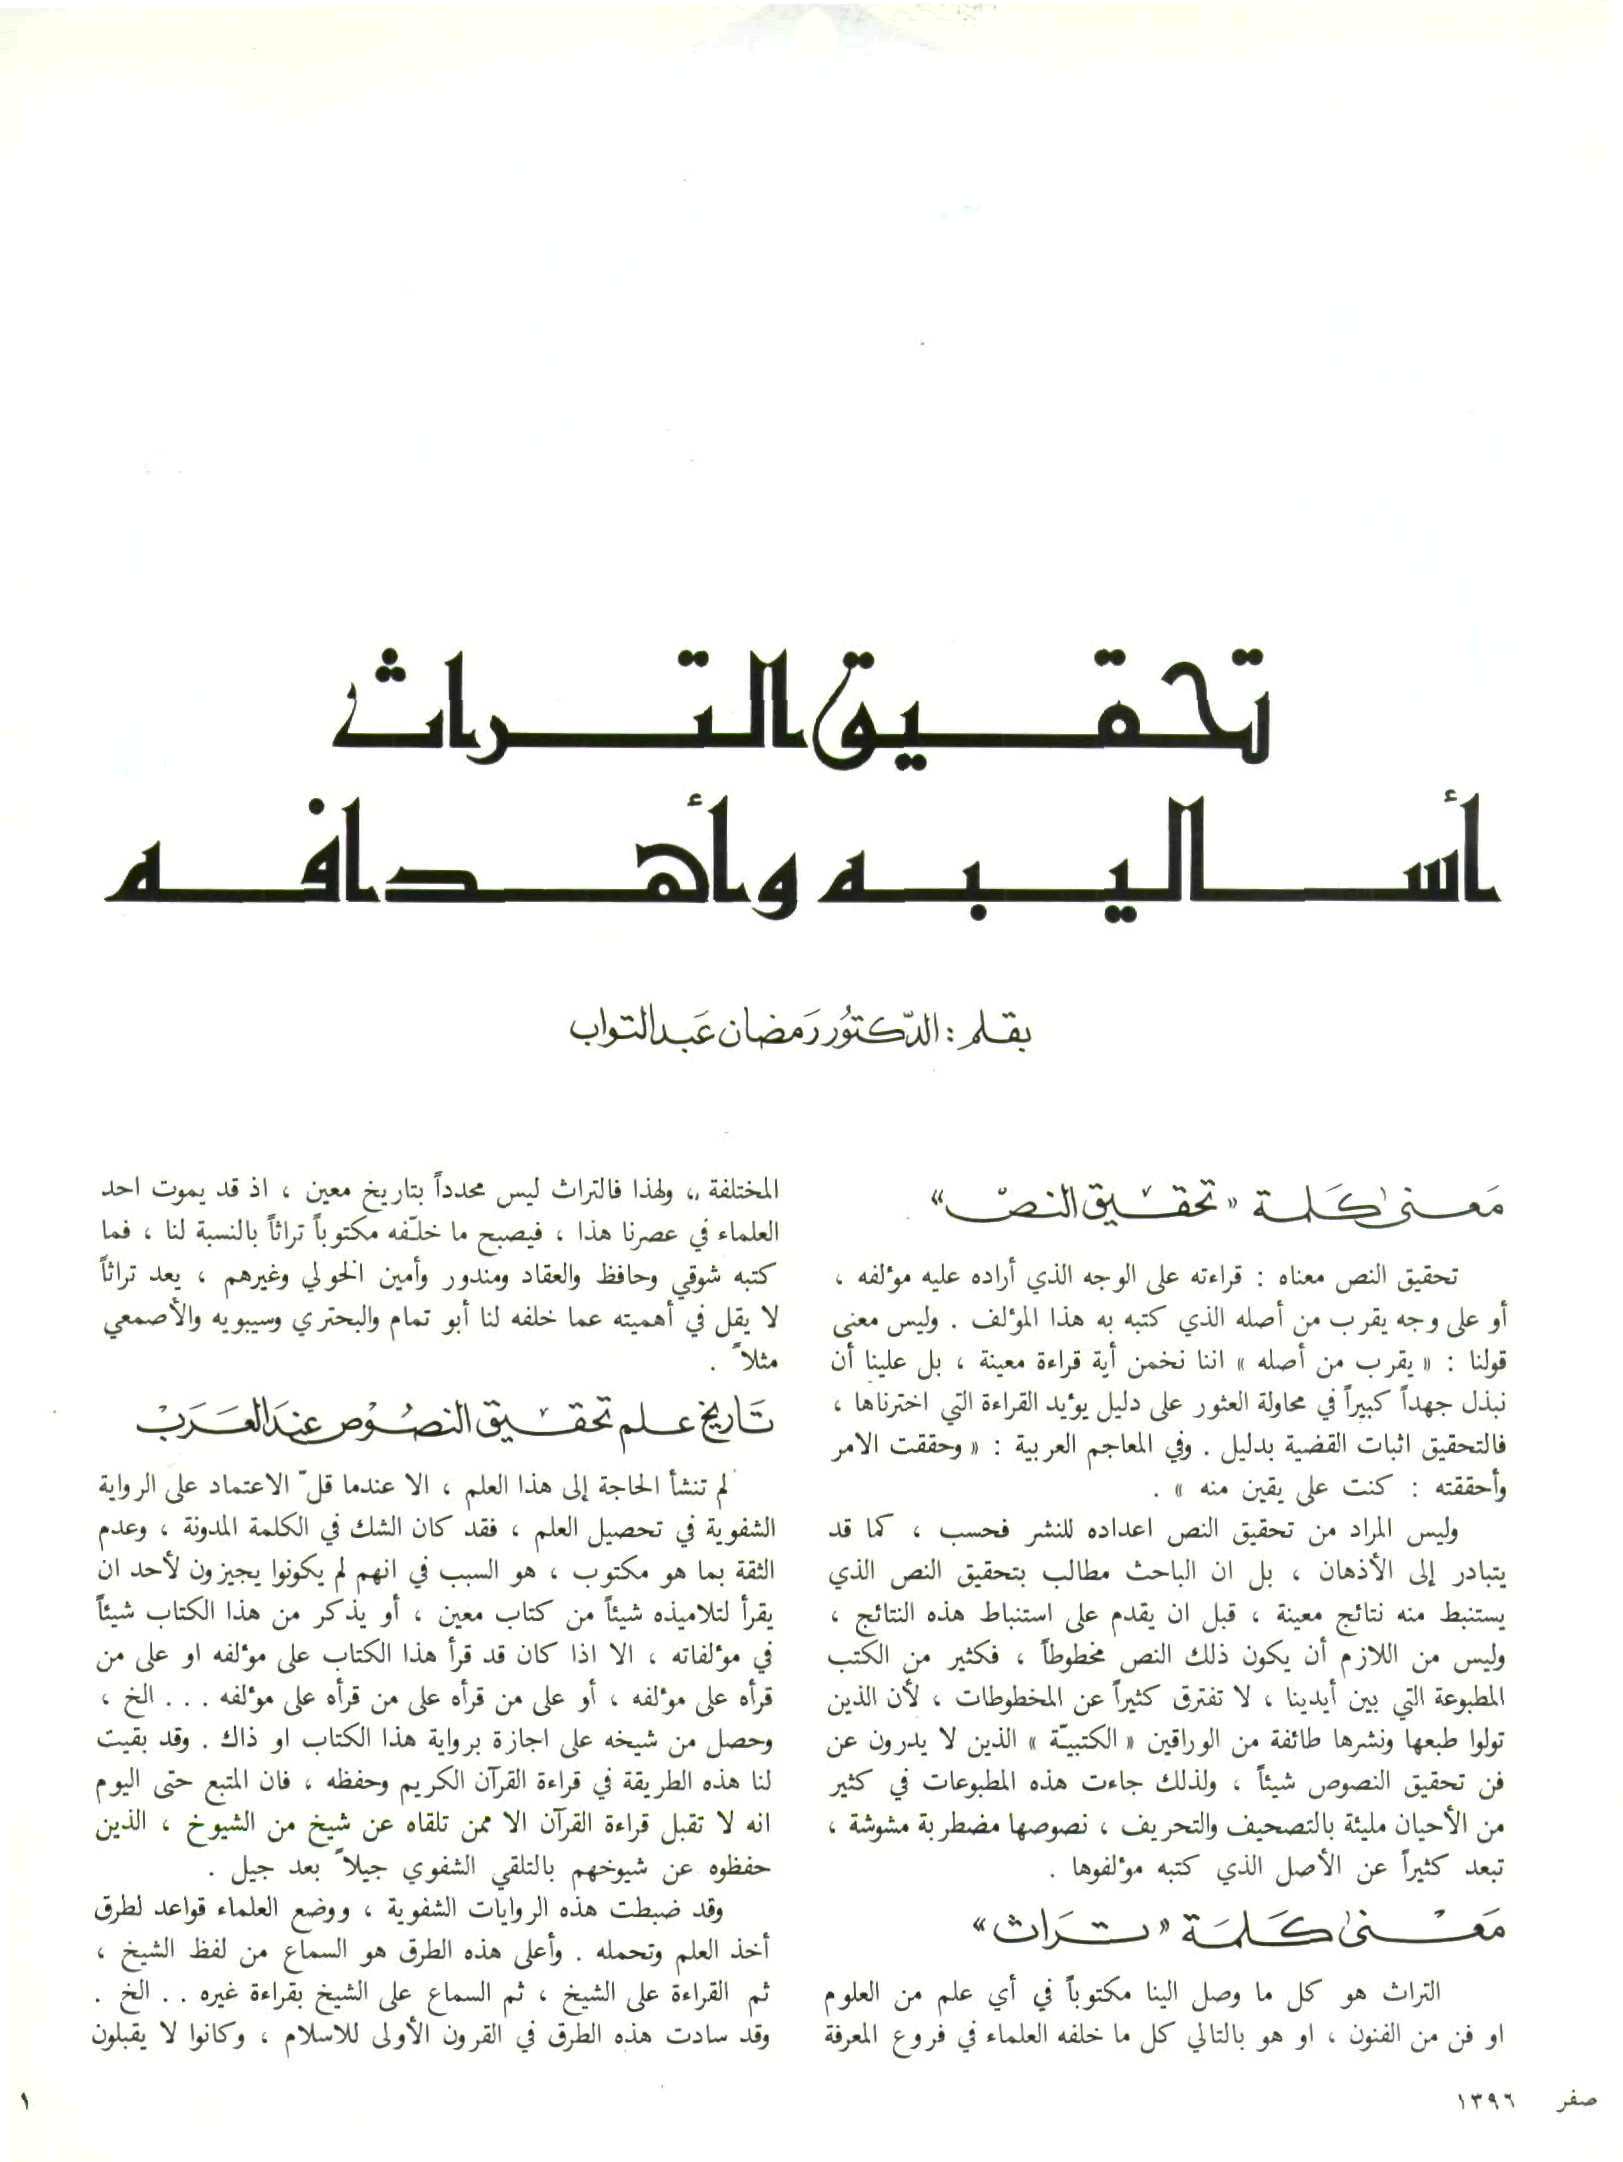 تحقيق التراث
أساليبه وأهدافه
بقلم : الدّكتور رَمضان عَبدالتواب
مَعنى كَلمة «تحقيق النصّ»
تحقيق النص معناه : قراءته على الوجه الذي أراده عليه مؤلفه ،
أو على وجه يقرب من أصله الذي كتبه به هذا المؤلف . وليس معنى
قولنا : « يقرب من أصله » اننا نخمن أية قراءة معينة ، بل علينا أن
نبذل جهداً كبيراً في محاولة العثور على دليل يؤيد القراءة التي اخترناها ،
فالتحقيق اثبات القضية بدليل . وفي المعاجم العربية : « وحققت الامر
وأحققته : كنت على يقين منه » .
وليس المراد من تحقيق النص اعداده للنشر فحسب ، كما قد
يتبادر إلى الأذهان ، بل ان الباحث مطالب بتحقيق النص الذي
يستنبط منه نتائج معينة ، قبل ان يقدم على استنباط هذه النتائج ،
وليس من اللازم أن يكون ذلك النص مخطوطاً ، فكثير من الكتب
المطبوعة التي بين أيدينا ، لا تفترق كثيراً عن المخطوطات ، لأن الذين
تولوا طبعها ونشرها طائفة من الوراقين « الكتبيّة » الذين لا يدرون عن
فن تحقيق النصوص شيئاً ، ولذلك جاءت هذه المطبوعات في كثير
من الأحيان مليئة بالتصحيف والتحريف ، نصوصها مضطربة مشوشة ،
تبعد كثيراً عن الأصل الذي كتبه مؤلفوها .
مَعْنى كَلمَة «تراث»
التراث هو كل ما وصل الينا مكتوباً في أي علم من العلوم
او فن من الفنون ، او هو بالتالي كل ما خلفه العلماء في فروع المعرفة
المختلفة ،، ولهذا فالتراث ليس محدداً بتاريخ معين ، اذ قد يموت احد
العلماء في عصرنا هذا ، فيصبح ما خلّفه مكتوباً تراثاً بالنسبة لنا ، فما
كتبه شوقي وحافظ والعقاد ومندور وأمين الخولي وغيرهم ، يعد تراثاً
لا يقل في أهميته عما خلفه لنا أبو تمام والبحتري وسيبويه والأصمعي
مثلاً .
تَاريخ علم تحقيق النصُوص عندَ العَرَبْ
لم تنشأ الحاجة إلى هذا العلم ، الا عندما قلّ الاعتماد على الرواية
الشفوية في تحصيل العلم ، فقد كان الشك في الكلمة المدونة ، وعدم
الثقة بما هو مكتوب ، هو السبب في انهم لم يكونوا يجيزون لأحد ان
يقرأ لتلاميذه شيئاً من كتاب معين ، أو يذكر من هذا الكتاب شيئاً
في مؤلفاته ، الا اذا كان قد قرأ هذا الكتاب على مؤلفه او على من
قرأه على مؤلفه ، أو على من قرأه على من قرأه على مؤلفه . . . الخ ،
وحصل من شيخه على اجازة برواية هذا الكتاب او ذاك . وقد بقيت
لنا هذه الطريقة في قراءة القرآن الكريم وحفظه ، فان المتبع حتى اليوم
انه لا تقبل قراءة القرآن الا ممن تلقاه عن شيخ من الشيوخ ، الذين
حفظوه عن شيوخهم بالتلقي الشفوي جيلاً بعد جيل .
وقد ضبطت هذه الروايات الشفوية ، ووضع العلماء قواعد لطرق
أخذ العلم وتحمله . وأعلى هذه الطرق هو السماع من لفظ الشيخ ،
ثم القراءة على الشيخ ، ثم السماع على الشيخ بقراءة غيره . . الخ .
وقد سادت هذه الطرق في القرون الأولى للاسلام ، وكانوا لا يقبلون
صفر ١٣٩٦
١